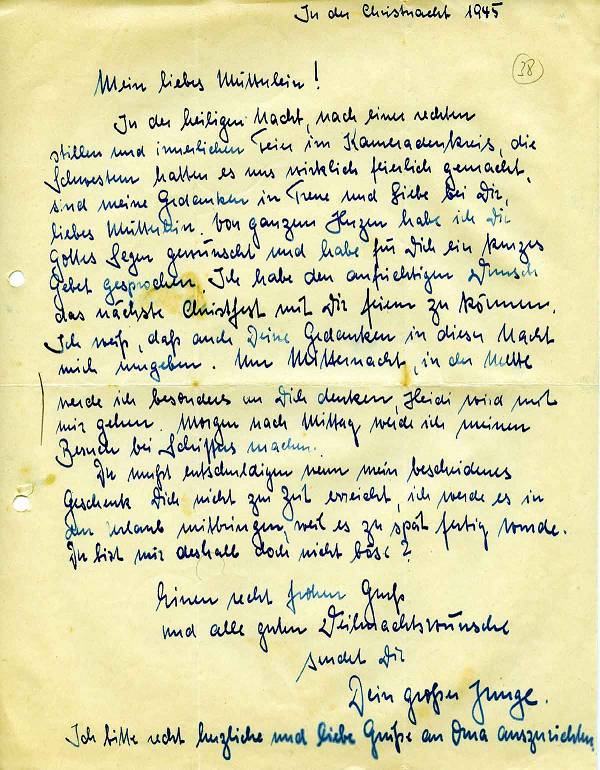 In der Christnacht 1945
38
Mein liebes Mütterlein!
In der heiligen Nacht, nach einer rechten
stillen und innerlichen Feier im Kameradenkreis, die
Schwestern hatten es uns wirklich feierlich gemacht,
sind meine Gedanken in Treue und Liebe bei Dir,
liebes Mütterlein. Von ganzem Herzen habe ich Dir
Gottes Segen gewünscht und habe für Dich ein kurzes
Gebet gesprochen. Ich habe den aufrichtigen Wunsch
das nächste Christfest mit Dir feiern zu können.
Ich weiß, daß auch Deine Gedanken in dieser Nacht
mich umgeben. Um Mitternacht, in der Mette
werde ich besonders an Dich denken, Heidi wird mit
mir gehen. Morgen nach Mittag werde ich meinen
Besuch bei Schiffers machen.
Du mußt entschuldigen wenn mein bescheidenes
Geschenk Dich nicht zur Zeit erreicht, ich werde es in
den Urlaub mitbringen, weil es zu spät fertig wurde.
Du bist mir deshalb doch nicht böse?
Einen recht frohen Gruß
und alle guten Weihnachtswünsche
sendet Dir
Dein großer Junge.
Ich bitte recht herzliche und liebe Grüße an Oma auszurichten.